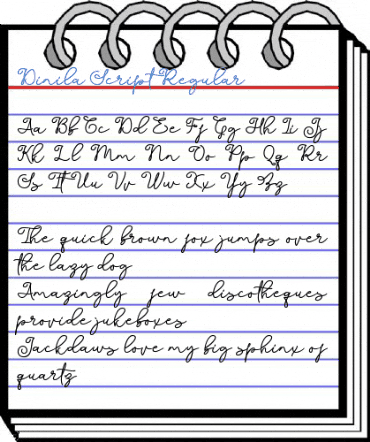 Dinila Script Regular
Aa Bb Cc Dd Ee Ff Gg Hh Ii Jj
Kk Ll Mm Nn Oo Pp Qq Rr
Ss Tt Uu Vv Ww Xx Yy Zz
The quick brown fox jumps over
the lazy dog
Amazingly few discotheques
provide jukeboxes
Jackdaws love my big sphinx of
quartz